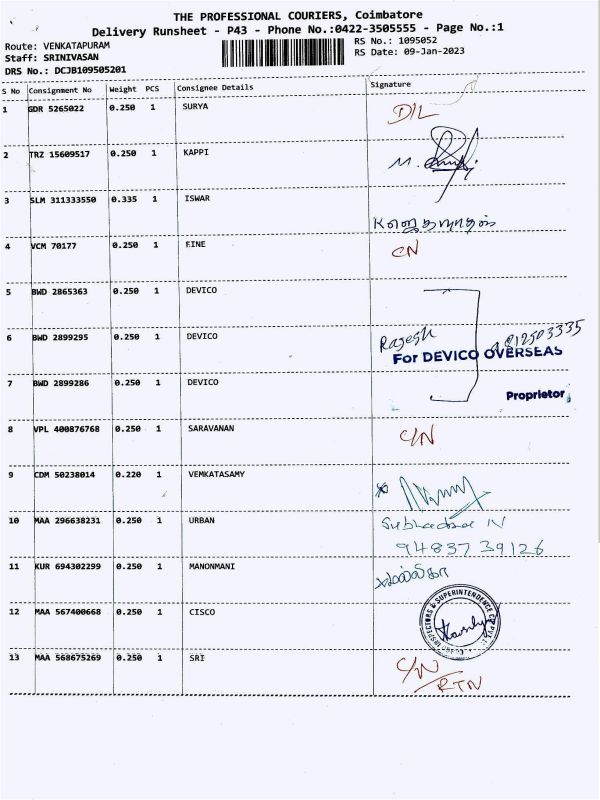 THE PROFESSIONAL COURIERS, Coimbatore
Delivery Runsheet - P43 - Phone No.:0422-3505555 - Page No.:1
Route: VENKATAPURAM
Staff: SRINIVASAN
DRS No.: DCJB109505201
RS No.: 1095052
RS Date: 09-Jan-2023
S No Consignment No Weight PCS Consignee Details Signature
1 GDR 5265022 0.250 1 SURYA D/L
2 TRZ 15609517 0.250 1 KAPPI M.
3 SLM 311333550 0.335 1 ISWAR
4 VCM 70177 0.250 1 FINE CN
5 BWD 2865363 0.250 1 DEVICO
6 BWD 2899295 0.250 1 DEVICO Rajesh
For DEVICO OVERSEAS
7 BWD 2899286 0.250 1 DEVICO
Proprietor
8 VPL 400876768 0.250 1 SARAVANAN C/N
9 CDM 50238014 0.220 1 VEMKATASAMY
10 MAA 296638231 0.250 1 URBAN Subhadra N
94837 39126
11 KUR 694302299 0.250 1 MANONMANI
12 MAA 567400668 0.250 1 CISCO
INSPECTORS & SUPERINTENDENCE CO PVT
13 MAA 568675269 0.250 1 SRI C/N
RTN